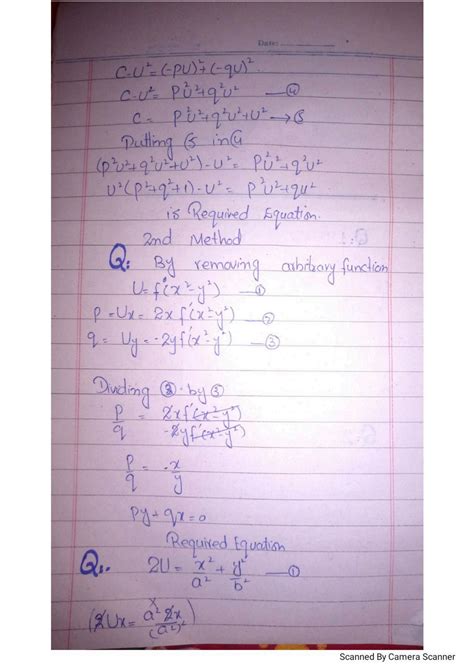 Date:
C-U² = (-PU)² + (-qU)²
C-U² = P²U² + q²U² —④
C = P²U² + q²U² + U² →⑤
Putting ⑤ in ④
(P²U² + q²U² + U²) - U² = P²U² + q²U²
U²(P² + q² + 1) - U² = P²U² + qU²
is Required Equation.
2nd Method
Q: By removing arbitrary function
U = f'(x² - y²) —①
P = Ux = 2x f'(x² - y²) —②
q = Uy = -2y f'(x² - y²) —③
Dividing ② by ③
P/q = 2x f'(x² - y²) / -2y f'(x² - y²)
P/q = -x/y
Py + qx = 0
Required Equation
Q:. 2U = x²/a² + y²/b² —①
(2Ux = a² 2x / (a²)²
Scanned By Camera Scanner